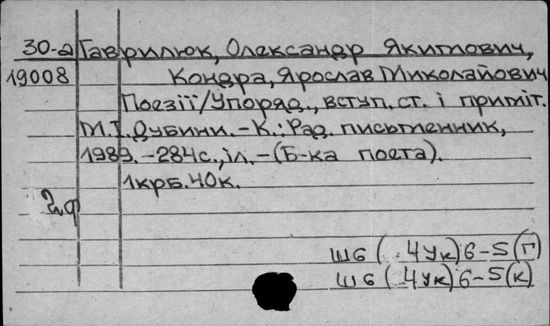 30-а Гаврилюк, Олександр Якимович,
19008 Кондра, Ярослав Миколайович
Поезії/Упоряд., вступ. ст. і приміт.
М.І.Дубини.-К.: Рад. письменник,
1989.-284с., іл.-(Б-ка поета).
1крб.40к.
Ш6(4Ук)6-5(Г)
Ш6(4Ук)6-5(К)